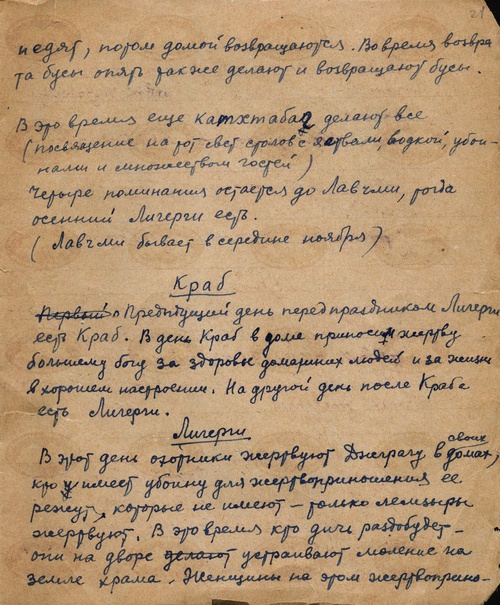 21
недят, потом домой возвращаются. Во время возвра
та бусы опять также делают и возвращают бусы.
В это время еще делают все
(посвящение на тот свет столов с яствами, водкой, убои-
нами и множеством гостей)
Четыре поминания остается до Лавъми, тогда
осенний Личерги есть.
(Лавъми бывает в середине ноября)
Краб
Первый Предыдущий день перед праздником Личерги
есть Краб. В день Краб в доме приносим жертву
большему богу за здоровье домашних людей и за жизнь
в хорошем настроении. На другой день после Краба
есть Личерги.
Личерги
В этот день охотники жертвуют Джграгу в своих домах,
кто имеет убоину для жертвоприношения ее
режут, которые не имеют – только лемзыры
жертвуют. В это время кто дичь раздобудет –
они на дворе делают устраивают моление на
земле храма. Женщины на этом жертвоприно-